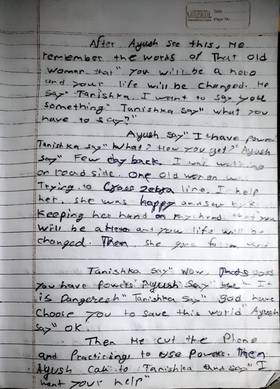 After Ayush see this, He
remember the works of That old
woman that "you will be a hero
and your life will be changed. He
say "Tanishka, I want to say you
something" Tanishka say" what you
have to say?"
Ayush say" I have power
Tanishka say" What? How you get? Ayush
say" Few day back, I was walking
on road side. One old woman
Trying to Cross zebra line, I help
her, she was happy and say
Keeping her hand on my head that you
will be a Hero and you life will be
changed. Then, she gone
Tanishka say" Wow, Thats
you have powers. Ayush say" but It
is Dangerest" Tanishka say" god have
Choose you to save this world Ayush
say" OK.
Then He cut the Phone
and Practicing to use Powers. Then
Ayush Call to Tanishka and say" I
want your help"